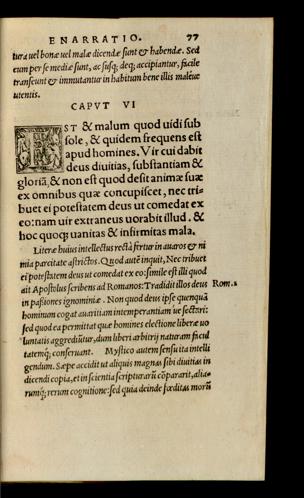 ENARRATIO. 77
turæ uel bonæ uel malæ dicendæ sunt & habendæ. Sed
cum per se mediæ sunt, ac susq; deq; accipiantur, facile
transeunt & immutantur in habitum bene illis maleue
utentis.
CAPVT VI
EST & malum quod uidi sub
sole, & quidem frequens est
apud homines. Vir cui dabit
deus diuitias, substantiam &
gloriã, & non est quod desit animæ suæ
ex omnibus quæ concupiscet, nec tri-
buet ei potestatem deus ut comedat ex
eo: nam uir extraneus uorabit illud. &
hoc quoq; uanitas & infirmitas mala.
Literæ huius intellectus rectà fertur in auaros & ni
mia parcitate astrictos. Quod autẽ inquit, Nec tribuet
ei potestatem deus ut comedat ex eo: simile est illi quod
ait Apostolus scribens ad Romanos: Tradidit illos deus Rom.1
in passiones ignominiæ. Non quod deus ipse quenquã
hominum cogat auaritiam intemperantiam ue sectari:
sed quod ea permittat quæ homines electione liberæ uo
luntatis aggrediũtur, dum liberi arbitrij naturam facul
tatemq; conseruant. Mystico autem sensu ita intelli
gendum. Sæpe accidit ut aliquis magnas sibi diuitias in
dicendi copia, et in scientia scripturarũ cõpararit, alia-
rumq; rerum cognitione: sed quia deinde fœditas morũ